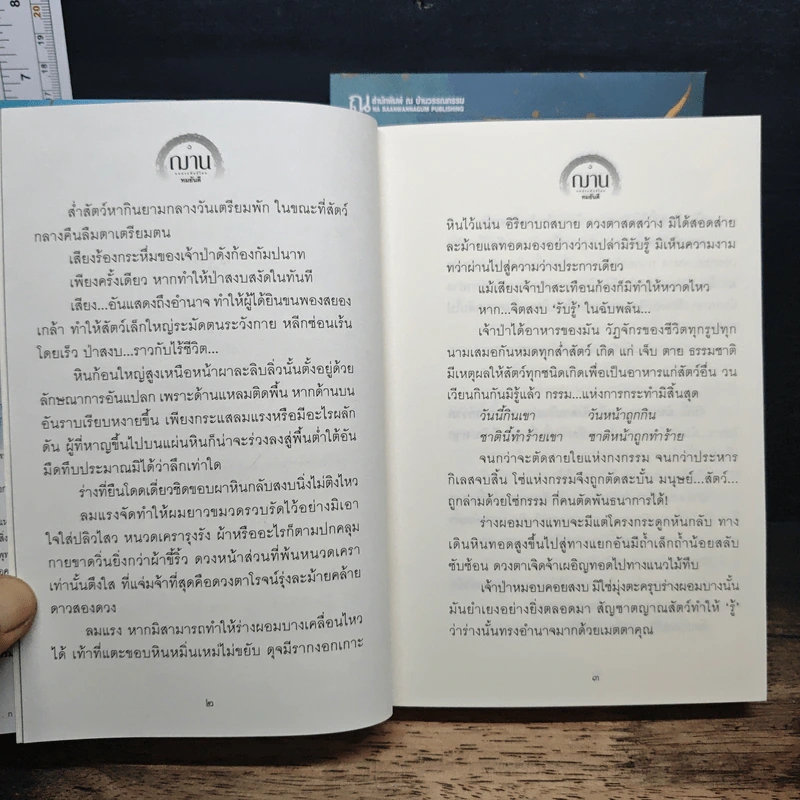 8
7
20
19
18
17
ณ สำนักพิมพ์ ณ บ้านวรรณกรรม
NA BAANWANNAGUM PUBLISHING
ฌาน
ทมยันตี
ส่ำสัตว์หากินยามกลางวันเตรียมพัก ในขณะที่สัตว์
กลางคืนลืมตาเตรียมตน
เสียงร้องกระหึ่มของเจ้าป่าดังก้องกัมปนาท
เพียงครั้งเดียว หากทำให้ป่าสงบสงัดในทันที
เสียง...อันแสดงถึงอำนาจ ทำให้ผู้ได้ยินขนพองสยอง
เกล้า ทำให้สัตว์เล็กใหญ่ระมัดตนระวังกาย หลีกซ่อนเร้น
โดยเร็ว ป่าสงบ...ราวกับไร้ชีวิต...
หินก้อนใหญ่สูงเหนือหน้าผาละลิบลิ่วนั้นตั้งอยู่ด้วย
ลักษณาการอันแปลก เพราะด้านแหลมติดพื้น หากด้านบน
อันราบเรียบหงายขึ้น เพียงกระแสลมแรงหรือมีอะไรผลัก
ดัน ผู้ที่หาญขึ้นไปบนแผ่นหินก็น่าจะร่วงลงสู่พื้นต่ำใต้อัน
มืดทึบประมาณมิได้ว่าลึกเท่าใด
ร่างที่ยืนโดดเดี่ยวชิดขอบผาหินกลับสงบนิ่งไม่ติงไหว
ลมแรงจัดทำให้ผมยาวขมวดรวบรัดไว้อย่างมิเอา
ใจใส่ปลิวไสว หนวดเครารุงรัง ผ้าหรืออะไรก็ตามปกคลุม
กายขาดวิ่นยิ่งกว่าผ้าขี้ริ้ว ดวงหน้าส่วนที่พ้นหนวดเครา
เท่านั้นตึงใส ที่แจ่มจ้าที่สุดคือดวงตาโรจน์รุ่งละม้ายคล้าย
ดาวสองดวง
ลมแรง หากมิสามารถทำให้ร่างผอมบางเคลื่อนไหว
ได้ เท้าที่แตะขอบหินหมิ่นเหม่ไม่ขยับ ดุจมีรากงอกเกาะ
๒
ฌาน
ทมยันตี
หินไว้แน่น อิริยาบถสบาย ดวงตาสดสว่าง มิได้สอดส่าย
ละม้ายแลทอดมองอย่างว่างเปล่ามิรับรู้ มิเห็นความงาม
ทว่าผ่านไปสู่ความว่างประการเดียว
แม้เสียงเจ้าป่าสะเทือนก้องก็มิทำให้หวาดไหว
หาก...จิตสงบ ‘รับรู้’ ในฉับพลัน...
เจ้าป่าได้อาหารของมัน วัฏจักรของชีวิตทุกรูปทุก
นามเสมอกันหมดทุกส่ำสัตว์ เกิด แก่ เจ็บ ตาย ธรรมชาติ
มีเหตุผลให้สัตว์ทุกชนิดเกิดเพื่อเป็นอาหารแก่สัตว์อื่น วน
เวียนกินกันมิรู้แล้ว กรรม...แห่งการกระทำมิสิ้นสุด
วันนี้กินเขา วันหน้าถูกกิน
ชาตินี้ทำร้ายเขา ชาติหน้าถูกทำร้าย
จนกว่าจะตัดสายใยแห่งกงกรรม จนกว่าประหาร
กิเลสจบสิ้น โซ่แห่งกรรมจึงถูกตัดสะบั้น มนุษย์...สัตว์...
ถูกล่ามด้วยโซ่กรรม กี่คนตัดพันธนาการได้!
ร่างผอมบางแทบจะมีแต่โครงกระดูกหันกลับ ทาง
เดินหินทอดสูงขึ้นไปสู่ทางแยกอันมีถ้ำเล็กถ้ำน้อยสลับ
ซับซ้อน ดวงตาเจิดจ้าเผอิญทอดไปทางแนวไม้ทึบ
เจ้าป่าหมอบคอยสงบ มิใช่มุ่งตะครุบร่างผอมบางนั้น
มันยำเยงอย่างยิ่งตลอดมา สัญชาตญาณสัตว์ทำให้ ‘รู้’
ว่าร่างนั้นทรงอำนาจมากด้วยเมตตาคุณ
๓